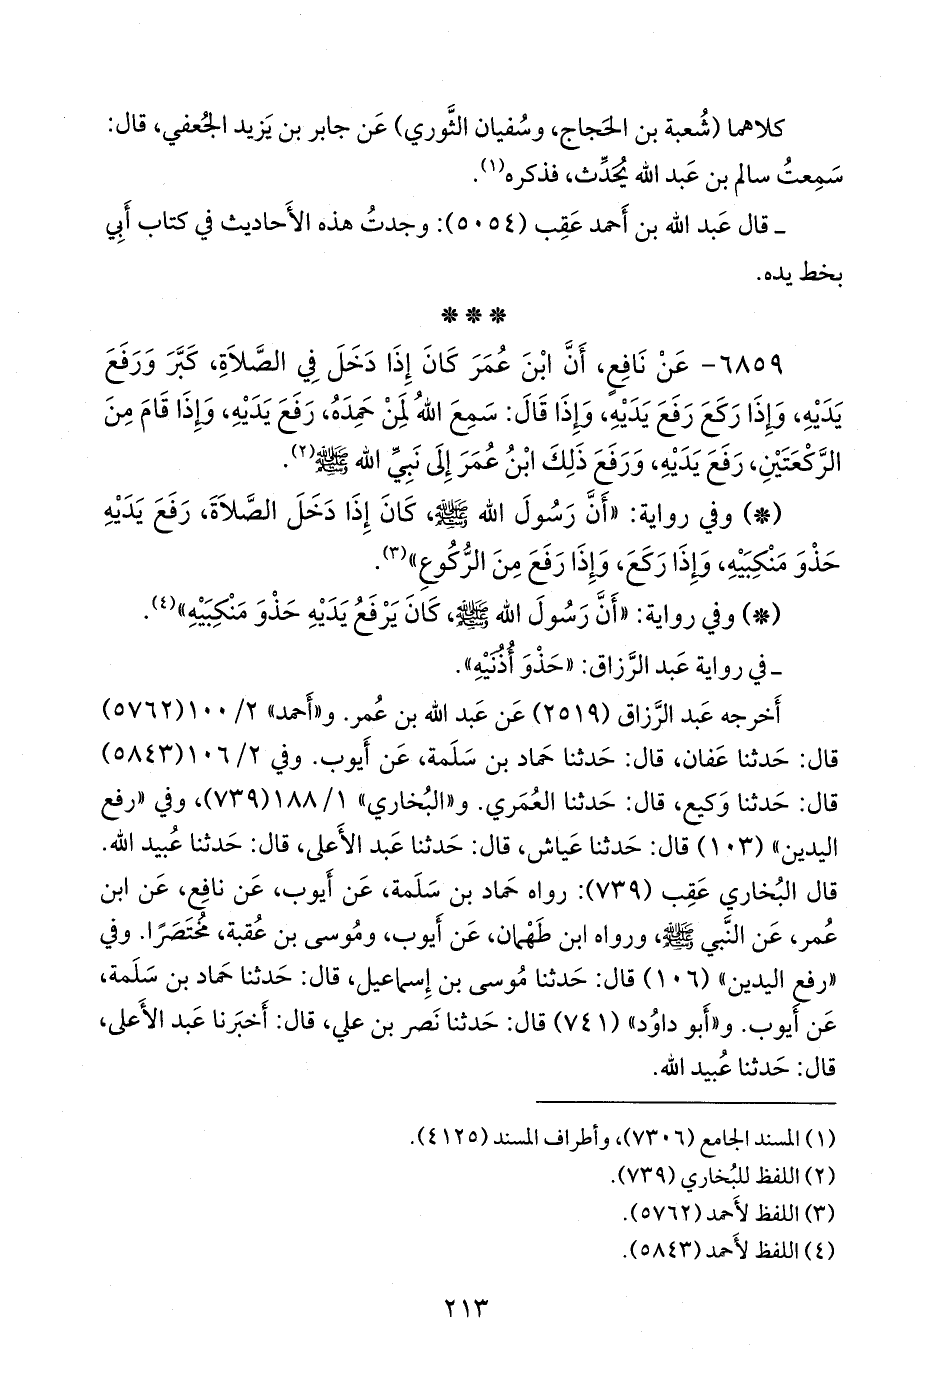 كلاهما (شُعبة بن الحَجاج، وسُفيان الثَّوري) عَن جابر بن يَزيد الجُعفي، قال:
سَمِعتُ سالم بن عَبد الله يُحَدِّث، فذكره(١).
ـ قال عَبد الله بن أَحمد عَقِب (٥٠٥٤): وجدتُ هذه الأَحاديث في كتاب أَبي
بخط يده.
* * *
٦٨٥٩- عَنْ نَافِعٍ، أَنَّ ابْنَ عُمَرَ كَانَ إِذَا دَخَلَ فِي الصَّلاَةِ، كَبَّرَ وَرَفَعَ
يَدَيْهِ، وَإِذَا رَكَعَ رَفَعَ يَدَيْهِ، وَإِذَا قَالَ: سَمِعَ اللهُ لِمَنْ حَمِدَهُ، رَفَعَ يَدَيْهِ، وَإِذَا قَامَ مِنَ
الرَّكْعَتَيْنِ، رَفَعَ يَدَيْهِ، وَرَفَعَ ذَلِكَ ابْنُ عُمَرَ إِلَى نَبِيِّ الله ﷺ(٢).
(*) وفي رواية: «أَنَّ رَسُولَ الله ﷺ، كَانَ إِذَا دَخَلَ الصَّلاَةَ، رَفَعَ يَدَيْهِ
حَذْوَ مَنْكِبَيْهِ، وَإِذَا رَكَعَ، وَإِذَا رَفَعَ مِنَ الرُّكُوعِ»(٣).
(*) وفي رواية: «أَنَّ رَسُولَ الله ﷺ، كَانَ يَرْفَعُ يَدَيْهِ حَذْوَ مَنْكِبَيْهِ»(٤).
ـ في رواية عَبد الرَّزاق: «حَذْوَ أُذُنَيْهِ».
أَخرجه عَبد الرَّزاق (٢٥١٩) عَن عَبد الله بن عُمر. و«أَحمد» ٢/ ١٠٠(٥٧٦٢)
قال: حَدثنا عَفان، قال: حَدثنا حَماد بن سَلَمة، عَن أَيوب. وفي ٢/ ١٠٦(٥٨٤٣)
قال: حَدثنا وَكيع، قال: حَدثنا العُمَري. و«البُخاري» ١/ ١٨٨(٧٣٩)، وفي «رفع
اليدين» (١٠٣) قال: حَدثنا عَياش، قال: حَدثنا عَبد الأَعلى، قال: حَدثنا عُبيد الله.
قال البُخاري عَقِب (٧٣٩): رواه حَماد بن سَلَمة، عَن أَيوب، عَن نافع، عَن ابن
عُمر، عَن النَّبي ﷺ، ورواه ابن طَهْمان، عَن أَيوب، ومُوسى بن عُقبة، مُخْتَصَرًا. وفي
«رفع اليدين» (١٠٦) قال: حَدثنا مُوسى بن إِسماعيل، قال: حَدثنا حَماد بن سَلَمة،
عَن أَيوب. و«أَبو داوُد» (٧٤١) قال: حَدثنا نَصر بن علي، قال: أَخبَرنا عَبد الأَعلى،
قال: حَدثنا عُبيد الله.
(١) المسند الجامع (٧٣٠٦)، وأطراف المسند (٤١٢٥).
(٢) اللفظ للبُخاري (٧٣٩).
(٣) اللفظ لأَحمد (٥٧٦٢).
(٤) اللفظ لأَحمد (٥٨٤٣).
٢١٣